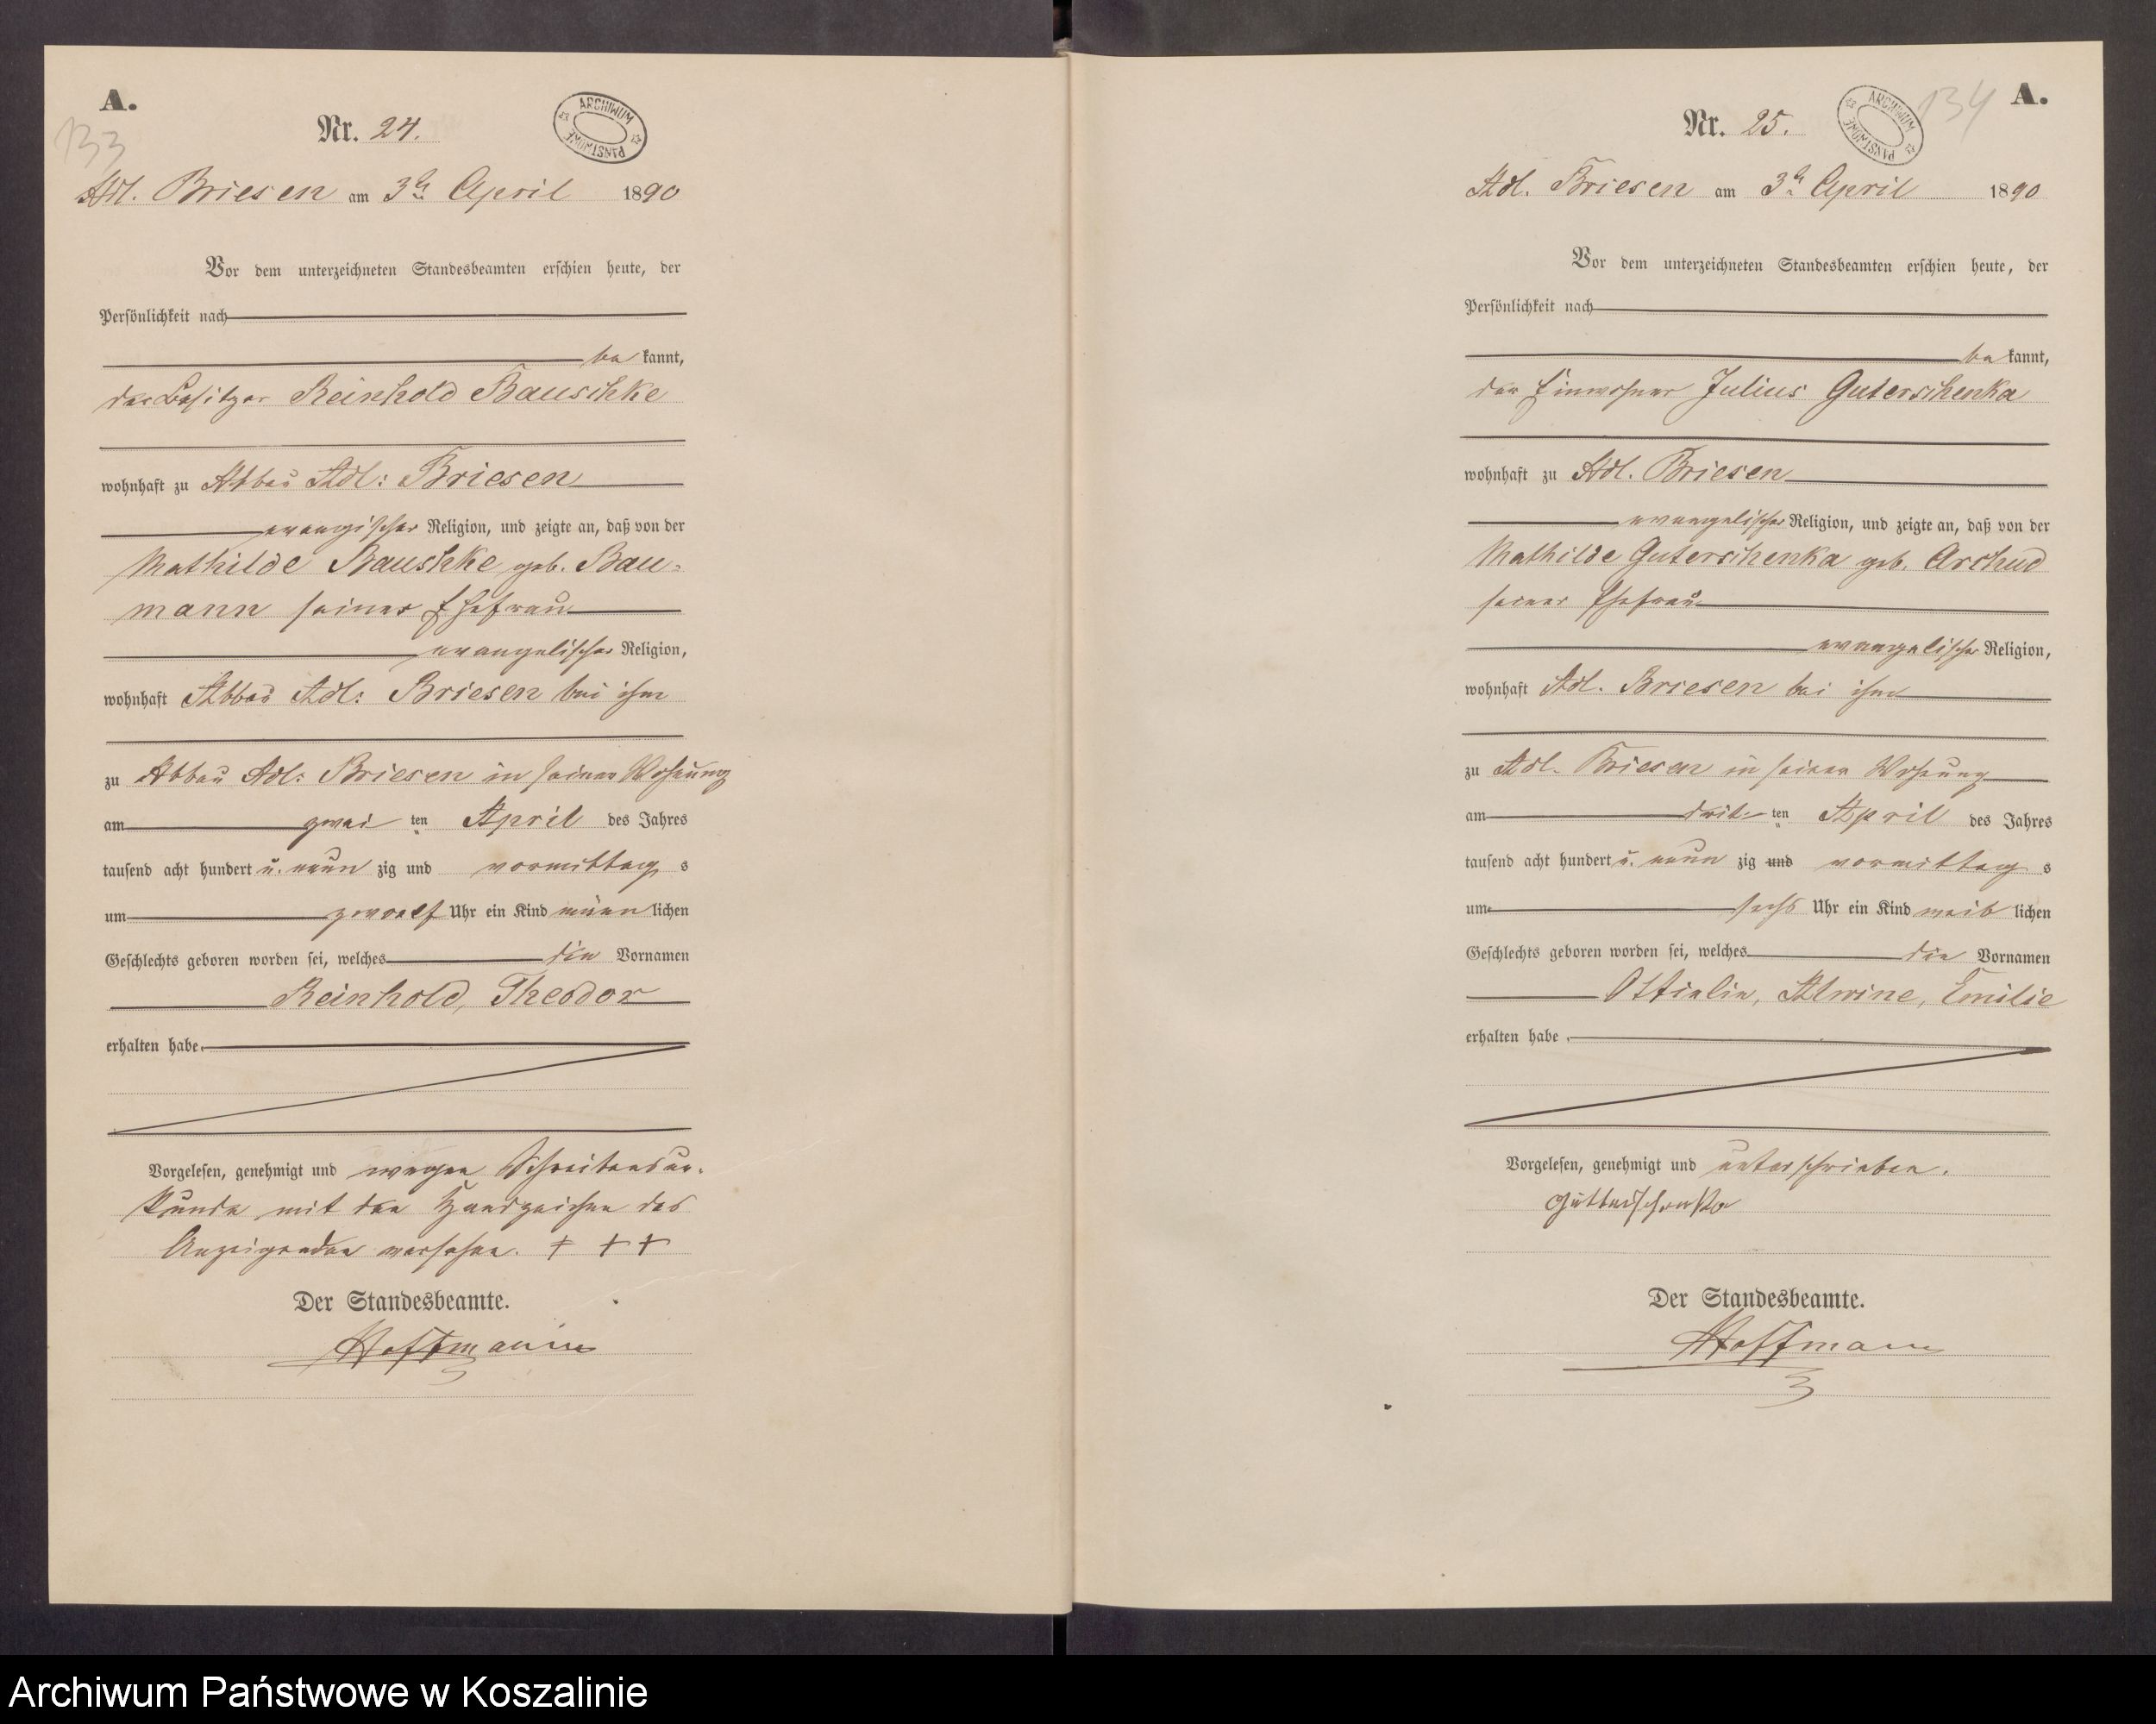 A.
133
Nr. 24.
ARCHIWUM PAŃSTWOWE
Adl. Briesen am 3ten April 1890
Vor dem unterzeichneten Standesbeamten erschien heute, der
Persönlichkeit nach
be kannt,
der Besitzer Reinhold Bauschke
wohnhaft zu Abbau Adl: Briesen
evangischer Religion, und zeigte an, daß von der
Mathilde Bauschke geb. Bau-
mann seiner Ehefrau
evangelischer Religion,
wohnhaft Abbau Adl: Briesen bei ihm
zu Abbau Adl: Briesen in seiner Wohnung
am zwei ten April des Jahres
tausend acht hundert u. neun zig und vormittag s
um zwoelf Uhr ein Kind männ lichen
Geschlechts geboren worden sei, welches die Vornamen
Reinhold, Theodor
erhalten habe.
Vorgelesen, genehmigt und wegen Schreibensun-
kunde mit den Handzeichen des
Anzeigenden versehen. + + +
Der Standesbeamte.
Hoffmann
A.
134
Nr. 25.
ARCHIWUM PAŃSTWOWE
Adl. Briesen am 3ten April 1890
Vor dem unterzeichneten Standesbeamten erschien heute, der
Persönlichkeit nach
be kannt,
der Einwohner Julius Guterschenka
wohnhaft zu Adl. Briesen
evangelischer Religion, und zeigte an, daß von der
Mathilde Guterschenka geb. Arschud
seiner Ehefrau
evangelischer Religion,
wohnhaft Adl. Briesen bei ihm
zu Adl. Briesen in seiner Wohnung
am drit- ten April des Jahres
tausend acht hundert u. neun zig und vormittag s
um sechs Uhr ein Kind weib lichen
Geschlechts geboren worden sei, welches die Vornamen
Ottielie, Alwine, Emilie
erhalten habe.
Vorgelesen, genehmigt und unterschrieben.
Gutterschenka
Der Standesbeamte.
Hoffmann
Archiwum Państwowe w Koszalinie